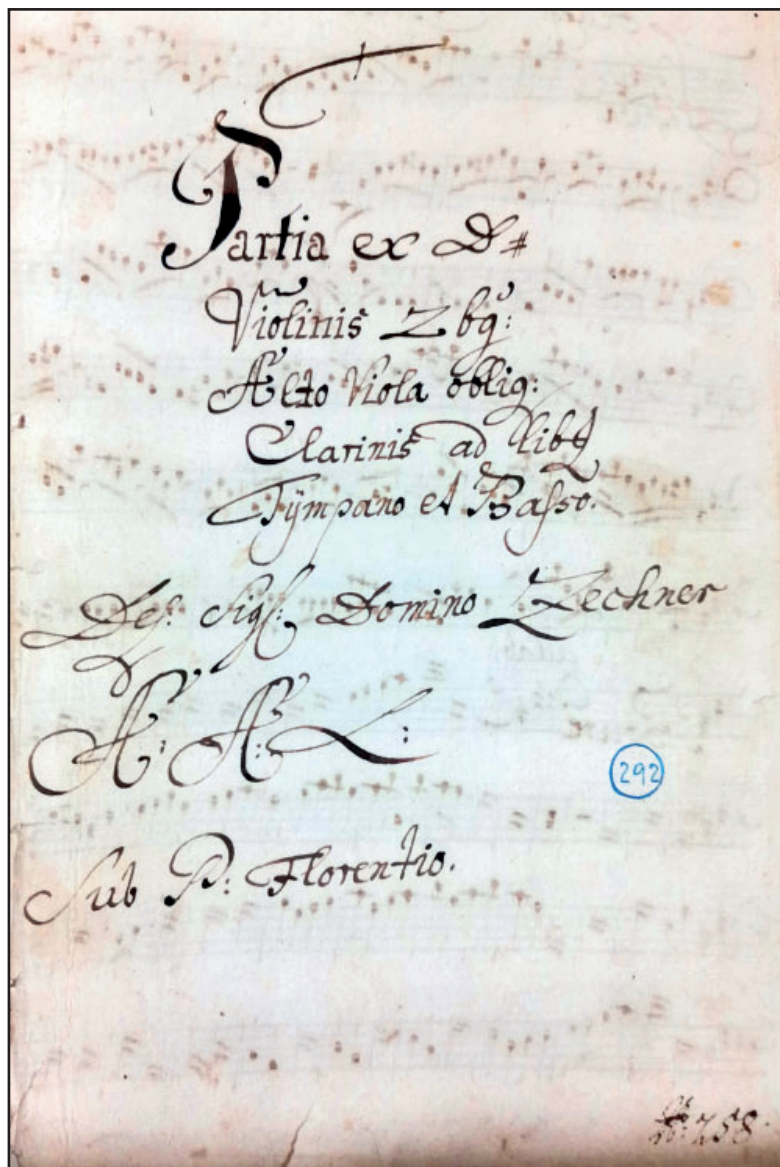 Partia ex D#
Violinis 2 bq:
Alto Viola oblig:
Clarinis ad lib
Tÿmpano et Basso.
Del: Sigl: Domino Zechner
A: A: L:
292
Sub P: Florentio.
258